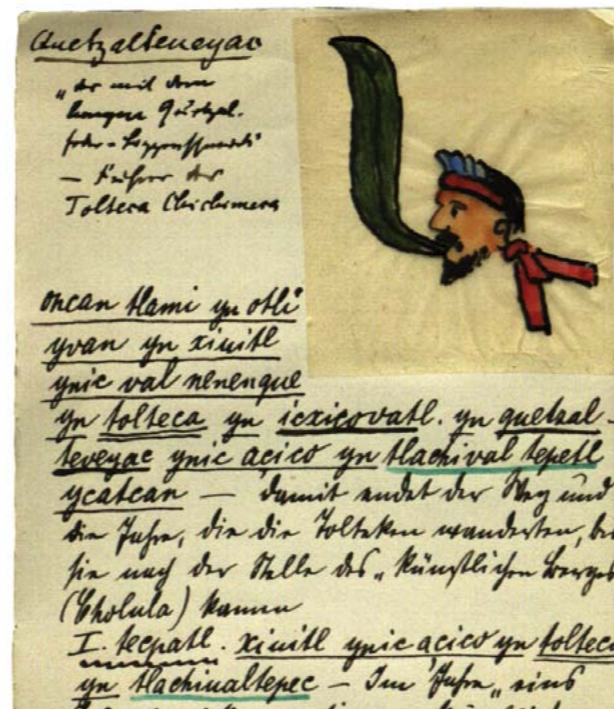 Quetzalteueyac
„der mit dem
langen Quetzal-
feder-Lippenschmuck"
— Führer der
Tolteca Chichimeca
oncan tlami yn otli
yvan yn xiuitl
ynic val nenenque
yn tolteca yn icxicovatl. yn quetzal-
teveyac ynic açico yn tlachival tepetl
ycatcan — damit endet der Weg und
die Jahre, die die Tolteken wanderten, bis
sie nach der Stelle des „künstlichen Berges
(Cholula) kamen
I. tecpatl. xiuitl ynic açico yn tolteca
yn tlachiualtepec — Im Jahre „eins